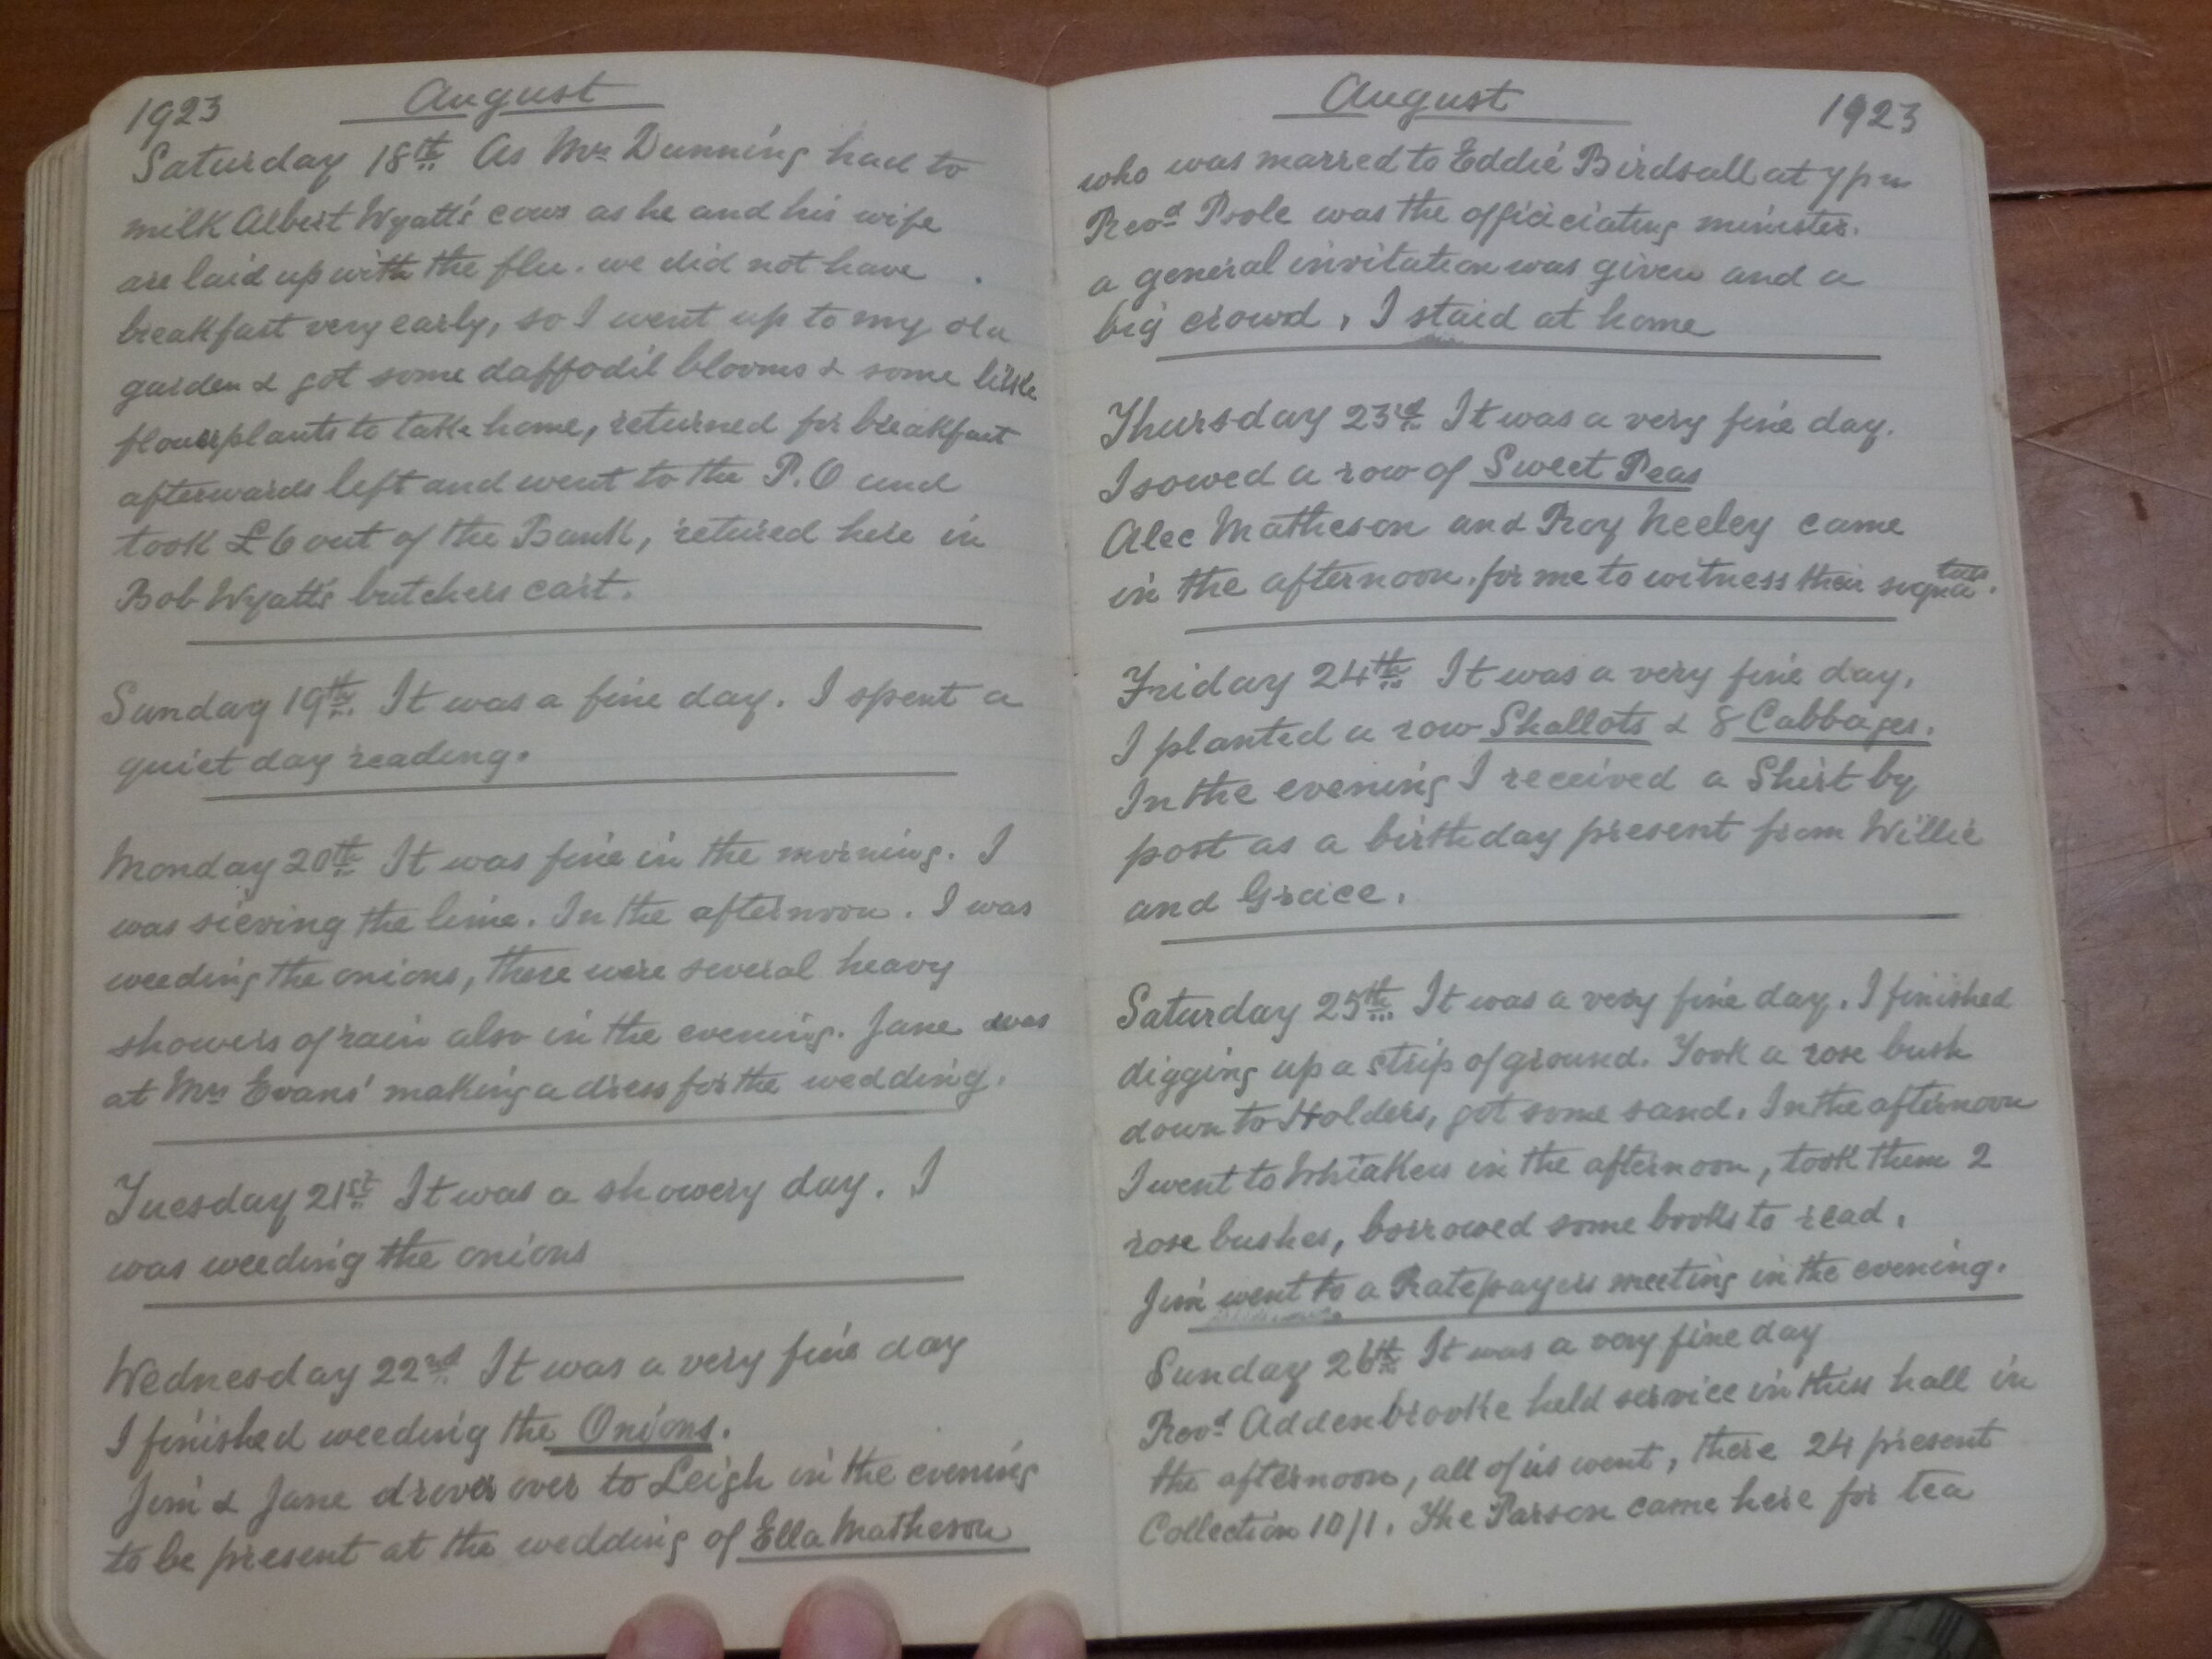 1923 August
Saturday 18th. As Mrs Dunning had to
milk Albert Wyatt's cows as he and his wife
are laid up with the flu. we did not have
breakfast very early, so I went up to my old
garden & got some daffodil blooms & some little
flowerplants to take home, returned for breakfast
afterwards left and went to the P.O and
took £6 out of the Bank, retured here in
Bob Wyatt's butchers cart.
Sunday 19th. It was a fine day. I spent a
quiet day reading.
Monday 20th It was fine in the morning. I
was sieving the lime. In the afternoon. I was
weeding the onions, there were several heavy
showers of rain also in the evening. Jane was
at Mrs Evans' making a dress for the wedding.
Tuesday 21st It was a showery day. I
was weeding the onions
Wednesday 22nd It was a very fine day
I finished weeding the Onions.
Jim & Jane drove over to Leigh in the evening
to be present at the wedding of Ella Matheson
August 1923
who was marred to Eddie Birdsall at 7pm
Revd Poole was the officiciating minister.
a general invitation was given and a
big crowd, I staid at home
Thursday 23rd It was a very fine day.
I sowed a row of Sweet Peas
Alec Matheson and Roy Neeley came
in the afternoon. for me to witness their signatures.
Friday 24th It was a very fine day,
I planted a row Shallots & 8 Cabbages.
In the evening I received a Shirt by
post as a birthday present from Willie
and Graice.
Saturday 25th It was a very fine day. I finished
digging up a strip of ground. Took a rose bush
down to Holders, got some sand. In the afternoon
I went to Whiakers in the afternoon, took them 2
rose bushes, borrowed some books to read.
Jim went to a Ratepayers meeting in the evening.
Sunday 26th It was a very fine day
Revd Addenbrooke held service in thes hall in
the afternoon, all of us went, there 24 present
Collection 10/1. The Parson came here for tea